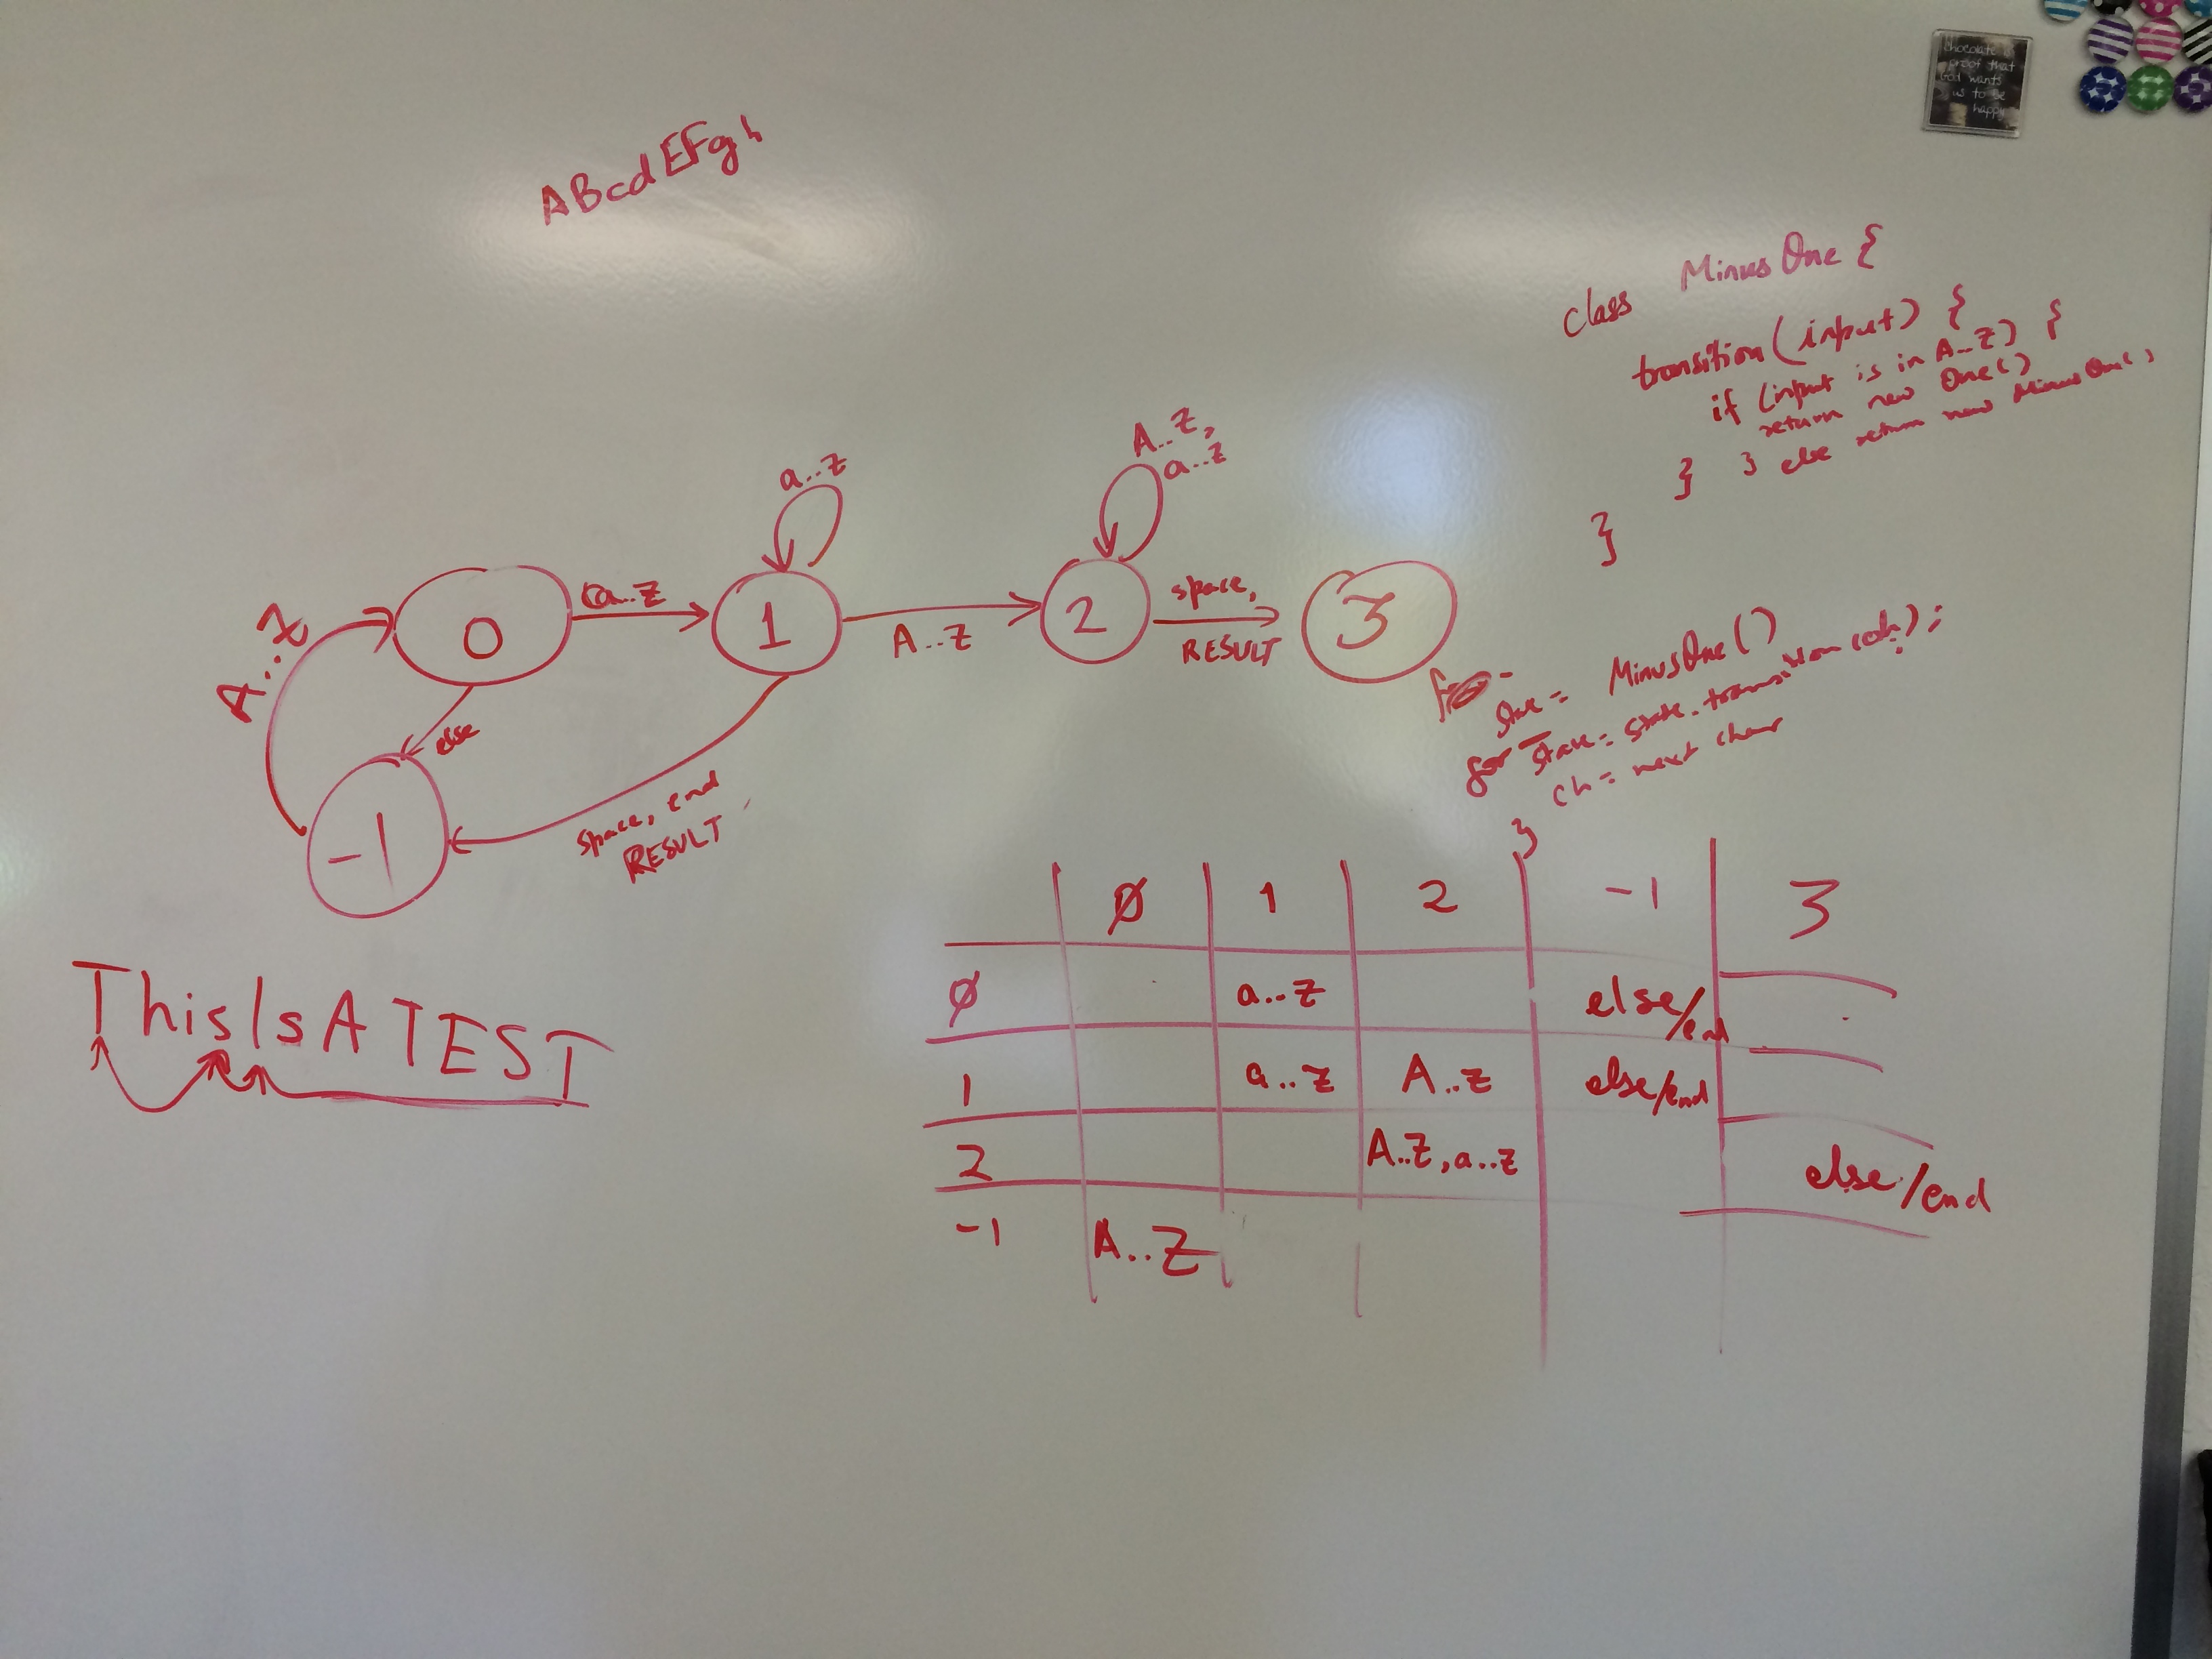 chocolate is
proof that
God wants
us to be
happy
ABcdEFgh
class MinusOne {
transition (input) {
if (input is in A..Z) {
return new One()
} else return new MinusOne()
}
}
a..z
A..Z,
a..z
A..Z
0
a..z
1
A..Z
2
space,
RESULT
3
else
-1
space, end
RESULT
state = MinusOne()
for state = state.transition (ch);
ch = next char
}
ThisIsATEST
0 1 2 -1 3
0 a..z else/end
1 a..z A..Z else/end
2 A..Z, a..z else/end
-1 A..Z